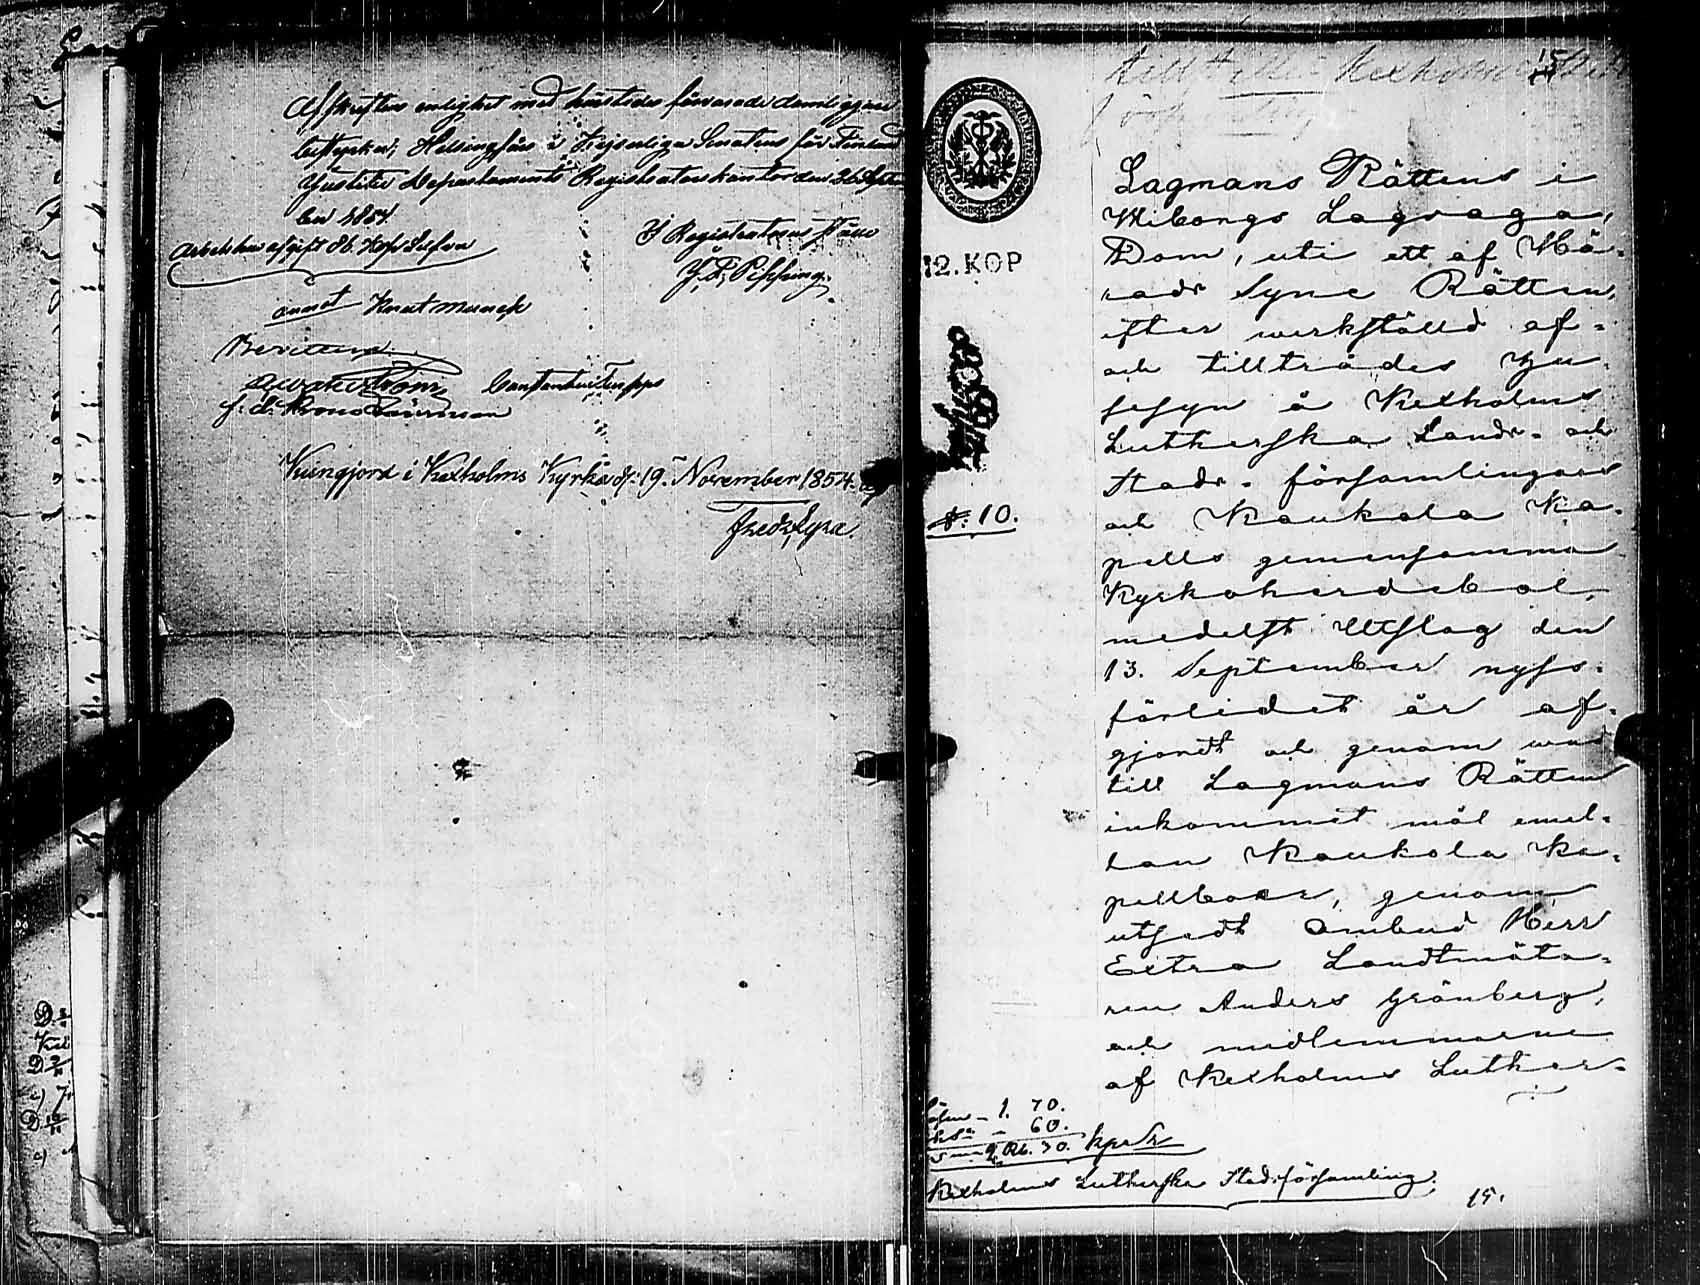 Afskriftens enlighet med härstädes förvarade
betyga; Helsingfors i Kejserliga Senatens för Finland
Justitie Departements Registratorskontor den 26 Septem
ber 1854.
På Registratorns vägnar
J. F. Pipping.
Knut Munck
Kungjord i Kexholms Kyrka d. 19. November 1854.
Fredr. Lyra.
15
12. KOP
№. 10.
Lagmans Rättens i
Wiborgs Lagsaga,
Dom, uti ett af Hä-
rads Syne Rätten,
efter werkställd af-
och tillträdes Hu-
sesyn å Kexholms
Lutherska Lands- och
Stads- församlingars
och Kaukola Ka-
pells gemensamma
Kyrkoherdebol,
medelst Utslag den
13. September nyss-
förlidet år af-
gjordt och genom wad
till Lagmans Rätten
inkommet mål emel-
lan Kaukola Ka-
pellboer, genom
utsedt Ombud Herr
Extra Landtmäta-
ren Anders Grönberg,
och medlemmarne
af Kexholms Luther-
1. 70.
60.
2 Rb. 30. kop. Sr
Kexholms Lutherska Stadsförsamling.
15.